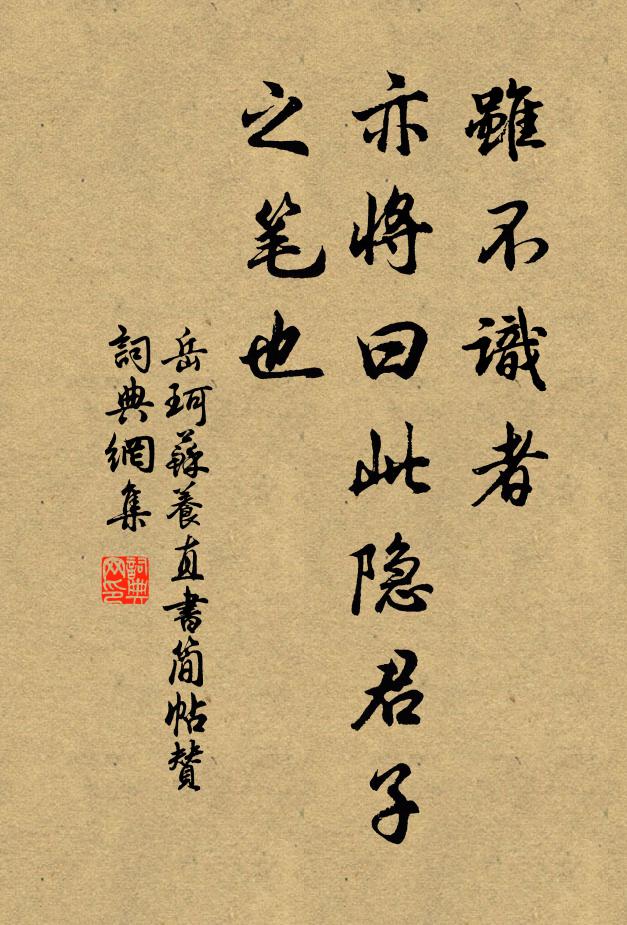 雖不識者
亦將曰此隐君子
之笔也
岳珂蘇養直書簡帖贊
詞典網集
詞典网印